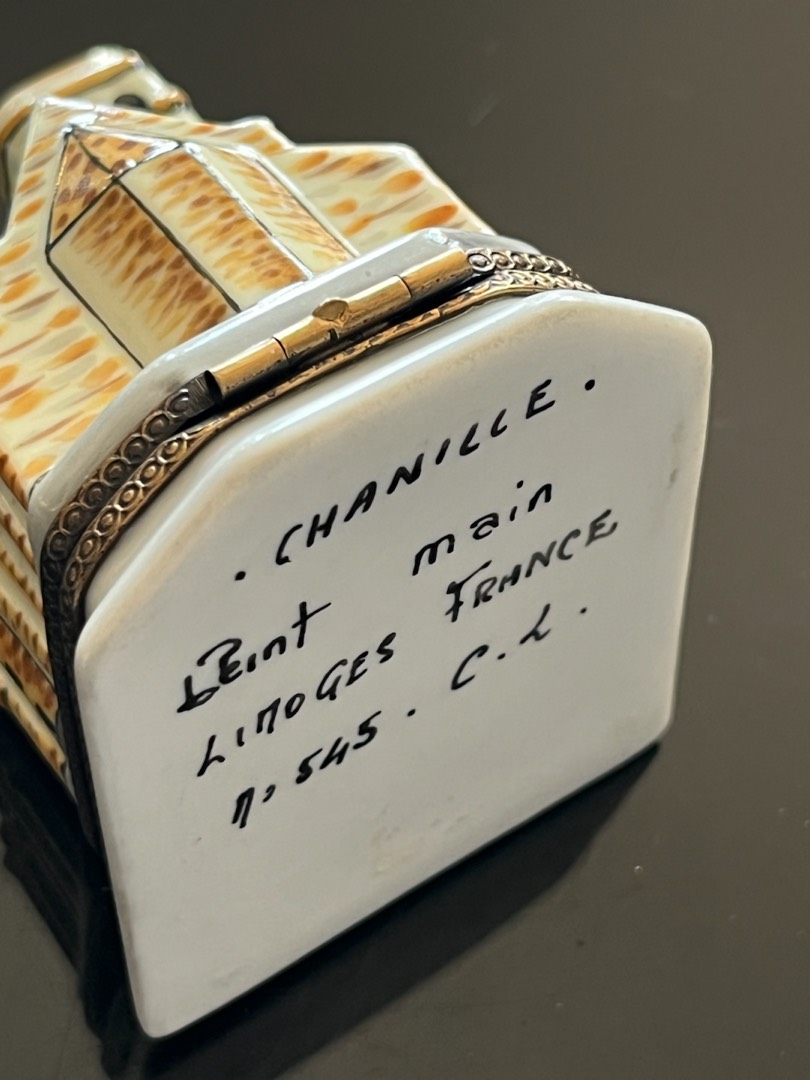 . CHANILLE .
Peint main
LIMOGES FRANCE
n: 545 . C.L.